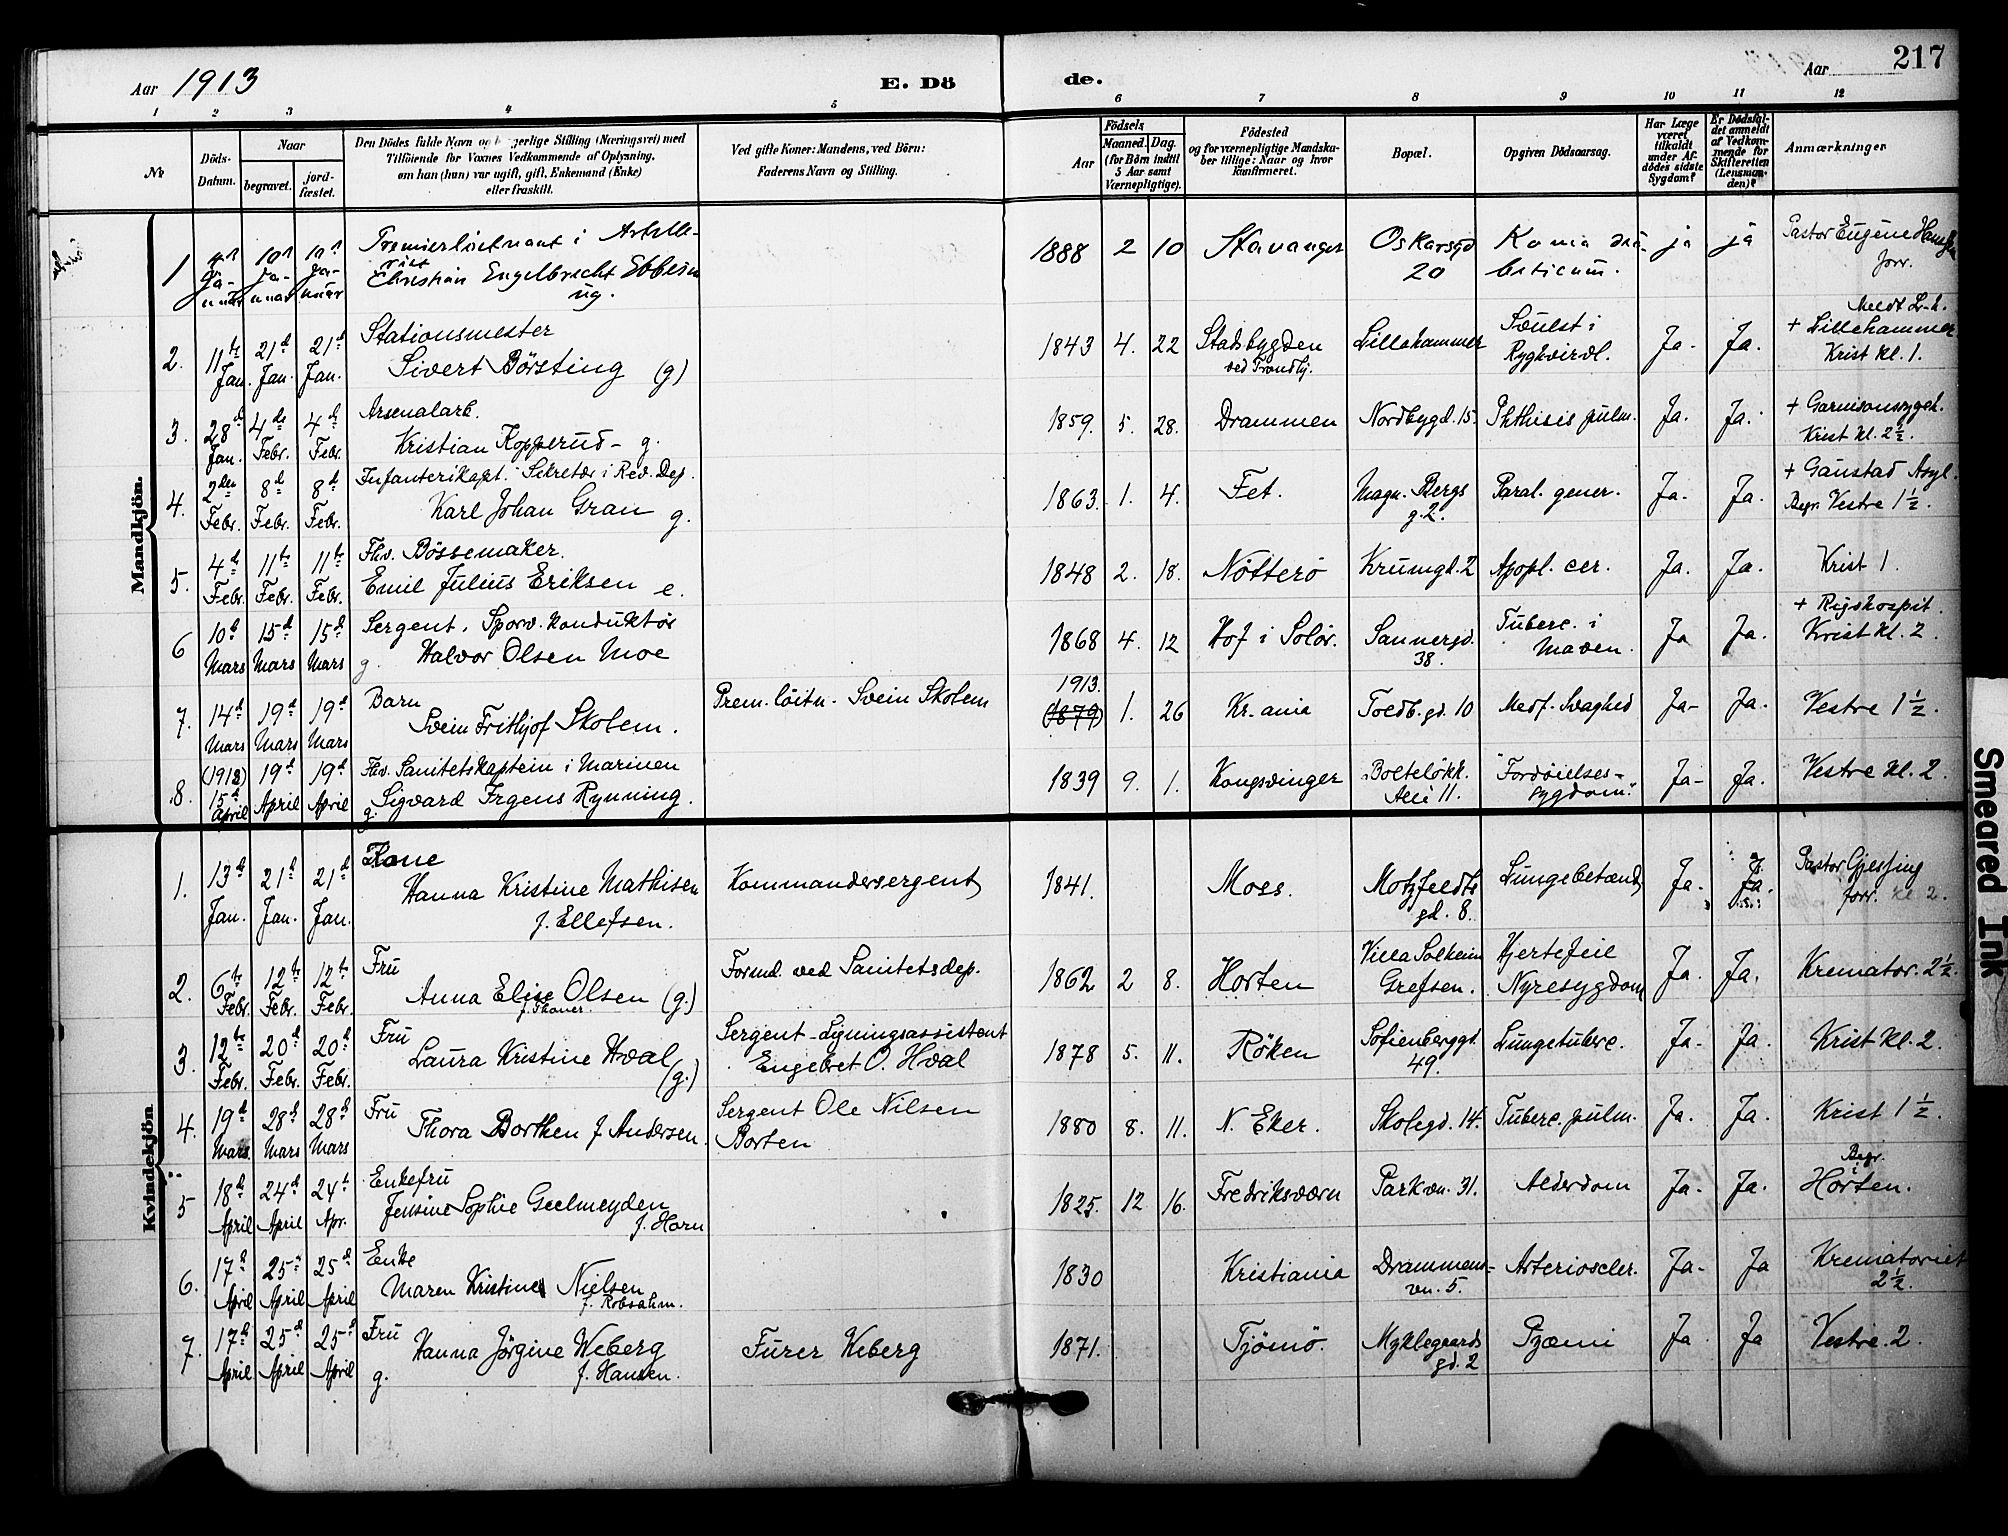 Aar 1913
E. Döde.
Aar
217
1 2 3 4 5 6 7 8 9 10 11 12
No
Döds-Datum.
Naar
begravet.
jordfæstet.
Den Dödes fulde Navn og borgerlige Stilling (Næringsvei) med
Tilföiende for Voxnes Vedkommende af Oplysning,
om han (hun) var ugift, gift, Enkemand (Enke)
eller fraskilt.
Ved gifte Koner: Mandens, ved Börn:
Faderens Navn og Stilling.
Födsels
Aar
Maaned. Dag.
(for Börn indtil
5 Aar samt
Værnepligtige).
Födested
og for værnepligtige Mandskaber tillige: Naar og hvor
konfirmeret.
Bopæl.
Opgiven Dödsaarsag.
Har Læge været tilkaldt under Afdödes sidste Sygdom?
Er Dödsfaldet anmeldt af Vedkommende for Skifteretten (Lensmanden)?
Anmærkninger
Mandkjön.
1 Januar 10 Januar 10 Januar
Premierløitnant i Artilleriet
Christian Engelbrecht
ug.
1888 2 10 Stavanger Oskarsgd 20 Koma diabeticum. ja ja Pastor Eugene Hanssen forr.
2. 11te Jan. 21d Jan. 21d Jan.
Stationsmester
Sivert Börsting (g)
1843 4. 22 Stadsbygden ved Trondhj. Lillehammer Svulst i Ryghvirvl. Ja. Ja. Meldt L-h. + Lillehammer Krist kl. 1.
3. 28d Jan. 4de Febr. 4d Febr.
Arsenalarb.
Kristian Kopperud - g.
1859. 5. 28. Drammen Nordbygd. 15. Phthisis pulm. Ja. Ja. + Garnisonssygeh. Krist kl. 2½.
4. 2den Febr. 8d Febr. 8d Febr.
Infanterikapt. Sekretær i Rev. Dep.
Karl Johan Gran g.
1863. 1. 4. Fet. Magn. Bergs g. 2. Paral. gener. Ja. Ja. + Gaustad Asyl. Begr. Vestre 1½.
5. 4d Febr. 11te Febr. 11te Febr.
Fhv. Bössemaker.
Emil Julius Eriksen e.
1848 2. 18. Nötterö Krumgd. 2 Apopl. cer. Ja. Ja. Krist 1.
6 10d Mars 15d Mars 15d Mars
Sergent, Sporv. konduktör
g. Halvor Olsen Moe
1868 4. 12 Hof i Solör. Sannergd. 38. Tuberc. i Maven. Ja Ja. + Rigshospit. Krist kl. 2.
7. 14d Mars 19d Mars 19d Mars
Barn
Svein Frithjof Skolem.
Prem. löitn. Svein Skolem
1913. (1879) 1. 26 Kr.ania Toldb. gd. 10 Medf. Svaghed Ja- Ja. Vestre 1½.
8. (1912) 15d April 19d April 19d April
Fhv. Sanitetskaptein i Marinen
Sigvard Irgens Rynning.
g.
1839 9. 1. Kongsvinger Bolteløkk. Alle 11. "Fordöielses-sygdom." Ja- Ja. Vestre kl. 2.
Kvindekjön.
1. 13d Jan. 21d Jan. 21d Jan.
Kone
Hanna Kristine Mathisen
f. Ellefsen.
Kommandersergent
1841. Moss. Motzfeldts gd. 8. Lungebetænd Ja. Ja. Pastor Gjessing forr. kl 2.
2. 6te Febr. 12te Febr. 12te Febr.
Fru
Anna Elise Olsen (g.)
Formd. ved Sanitetsdep.
1862 2 8. Horten Villa Solheim Grefsen. Hjertefeil Nyresygdom Ja. Ja. Kremator. 2½.
3. 12te Febr. 20d Febr. 20d Febr.
Fru
Laura Kristine Hval (g.)
Sergent - Lysningsassistent
Engebret O. Hval
1878 5. 11. Röken Sofienberggd. 49. Lungetuberc. Ja. Ja. Krist kl. 2.
4. 19d Mars 28d Mars 28d Mars
Fru
Thora Borthen f. Andersen.
Sergent Ole Nilsen
Borten
1880 8. 11. N. Eker. Skolegd. 14. Tuberc. pulm. Ja. Ja. Krist 1½.
5 18d April 24d April 24d Apr.
Enkefru
Jensine Sophie Geelmeyden
f. Horn
1825. 12 16. Fredriksværn Parkvn. 31. Alderdom Ja. Ja. Begr. i Horten.
6. 17d April 25d April 25d April
Enke
Maren Kristine Nielsen
f. Robsahm.
1830 Kristiania Drammens-vn. 5. Arterioscler. Ja. Ja Krematoriet 2½.
7. 17d April 25d April 25d April
Fru
Hanna Jörgine Weberg
g. f. Hansen.
Furer Weberg
1871. Tjömö. Myklegaards gd. 2 Pyæmi Ja Ja Vestre. 2
Smeared Ink